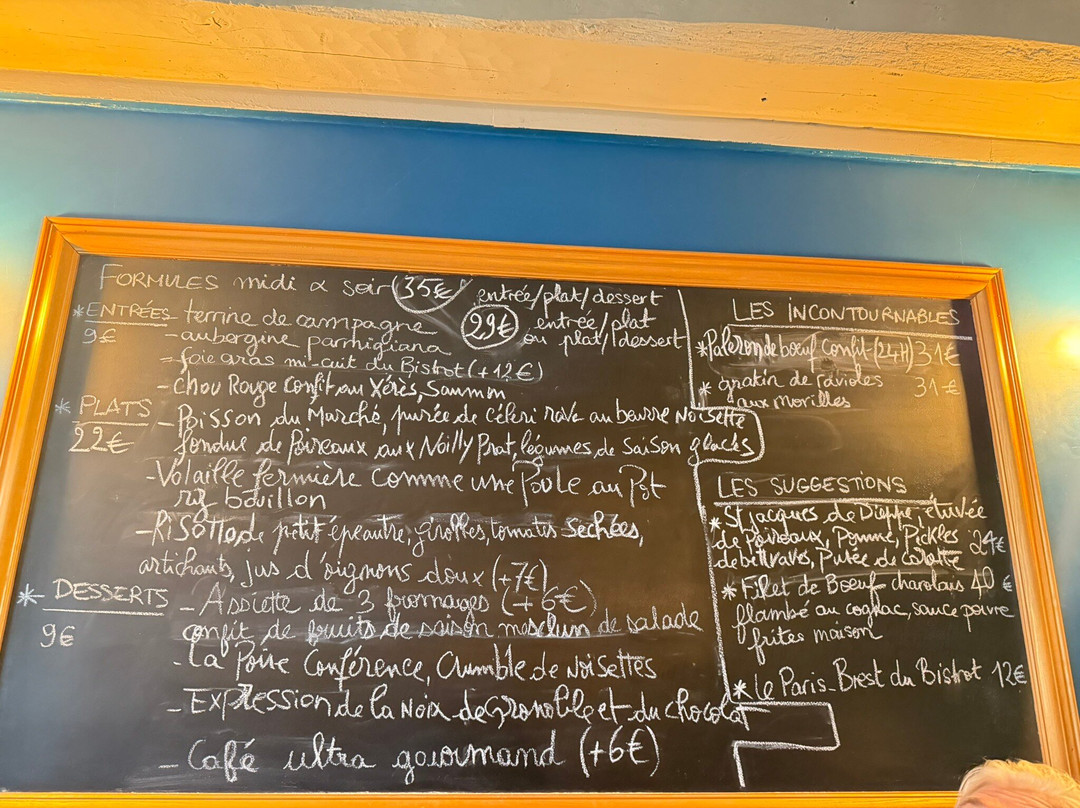 FORMULES midi & soir 35€ entrée/plat/dessert
29€ entrée/plat
ou plat/dessert
* ENTRÉES - terrine de campagne
9€ - aubergine parmigiana
- foie gras mi-cuit du Bistrot (+12€)
- Chou Rouge confit au Xérès, Saumon
* PLATS - Poisson du Marché, purée de céleri rave au beurre Noisette
22€ fondue de Poireaux aux Noilly Prat, légumes de Saison glacés
- Volaille fermière comme une Poule au Pot
riz bouillon
- Risotto de petit épeautre, girolles, tomates Sechées,
artichauts, jus d'oignons doux (+7€)
* DESSERTS - Assiette de 3 fromages (+6€)
9€ confit de fruits de saison mesclun de salade
- La Poire Conférence, Crumble de Noisettes
- Expression de la Noix de Grenoble et du chocolat
- Café ultra gourmand (+6€)
LES INCONTOURNABLES
* Paleron de bœuf Confit (24H) 31€
* gratin de ravioles 31€
aux morilles
LES SUGGESTIONS
* St jacques de Dieppe, étuvée
de Poireaux, Pomme, Pickles 24€
de bettraves, Purée de Carotte
* Filet de Boeuf charolais 40€
flambé au cognac, sauce poivre
frites maison
* Le Paris-Brest du Bistrot 12€